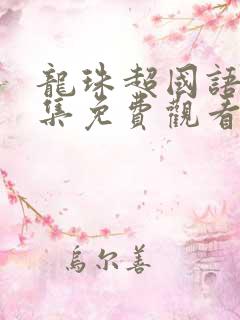 龍珠超國語
集免費觀看
烏尔善